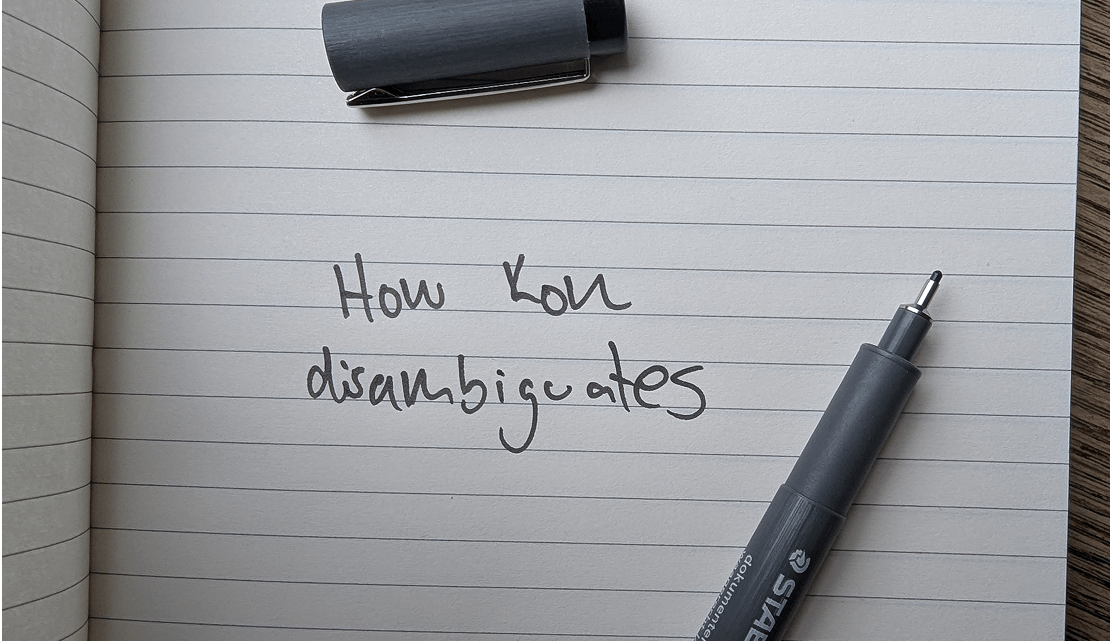 How Kon
disambiguates
STAB
dokumente